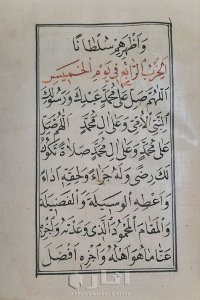 وَأَظْهَرِهِمْ سُلْطَانًا
الحزب الرابع في يوم الخميس
اللهم صل على محمد عبدك ورسولك
النبي الأمي وعلى آل محمد اللهم صل
على محمد وعلى آل محمد صلاة تكون
لك رضى وله جزاء ولحقه اداء
واعطه الوسيلة والفضيلة
والمقام المحمود الذي وعدته واجزه
عنا ما هو اهله واجزه افضل